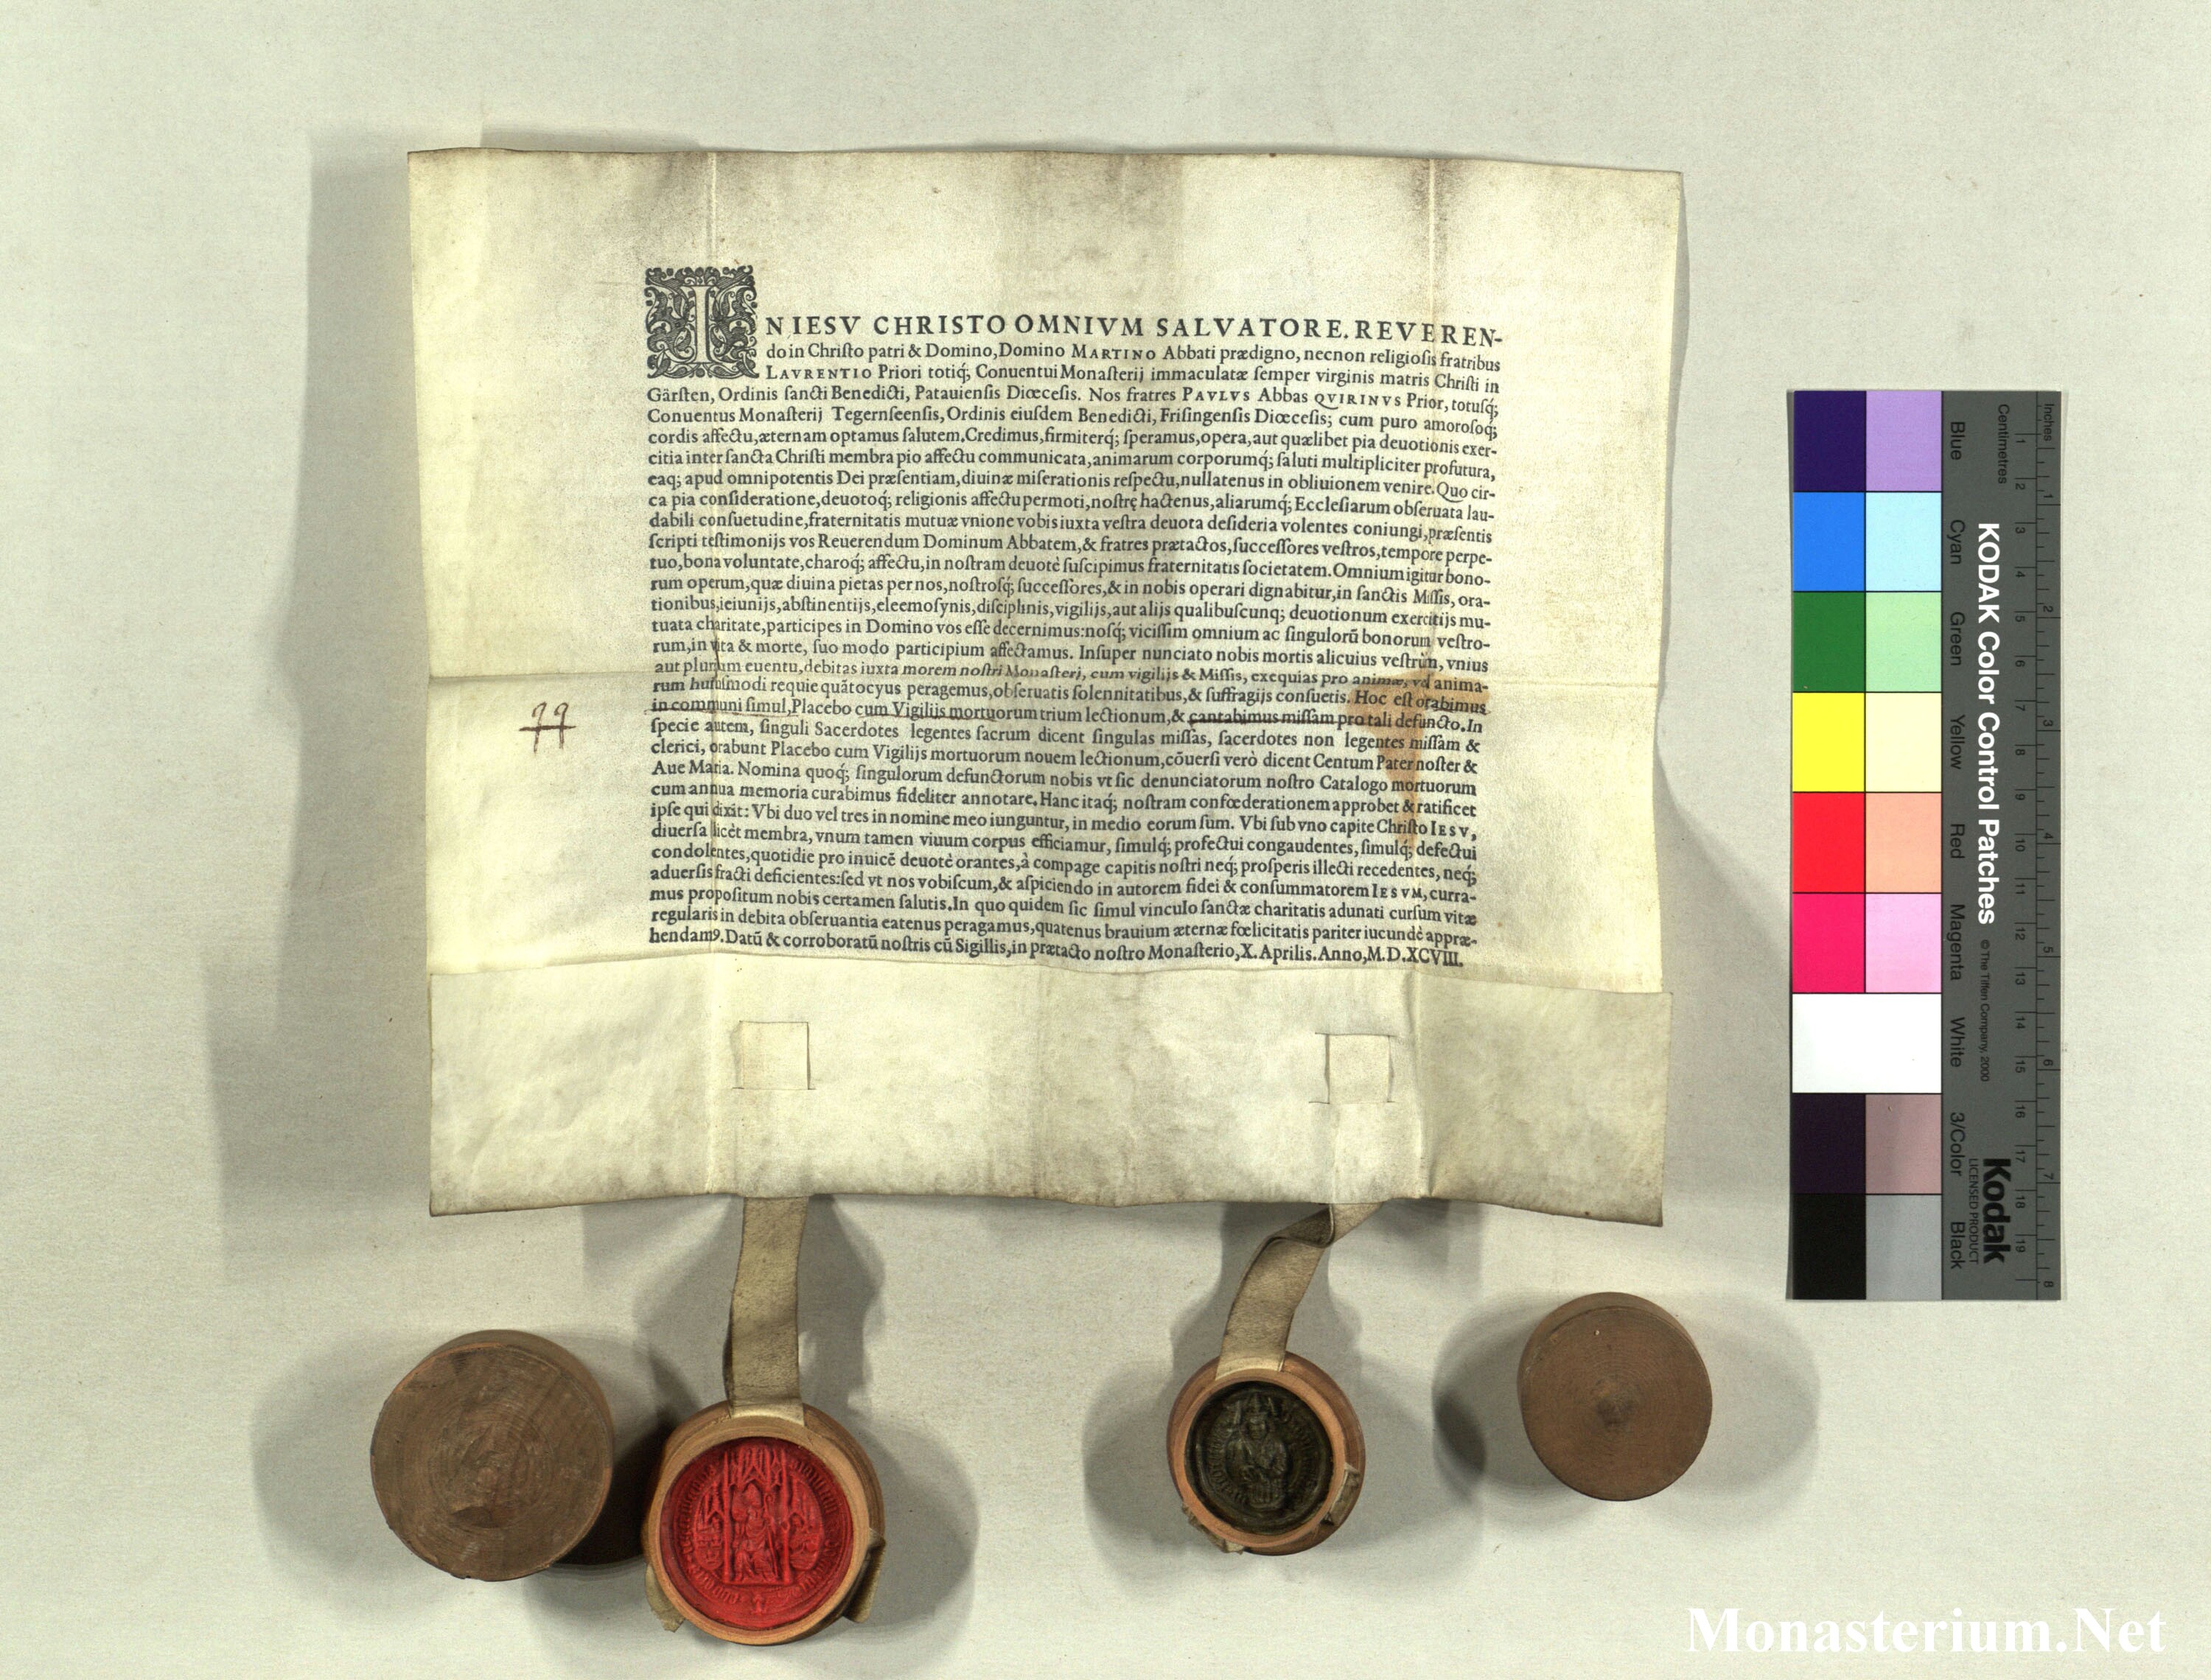 IN IESV CHRISTO OMNIVM SALVATORE. REVEREN-
do in Chriſto patri & Domino, Domino MARTINO Abbati prædigno, necnon religioſis fratribus
LAVRENTIO Priori totiq́; Conuentui Monaſterij immaculatæ ſemper virginis matris Chriſti in
Gärſten, Ordinis ſancti Benedicti, Patauienſis Diœceſis. Nos fratres PAVLVS Abbas QVIRINVS Prior, totuſq́;
Conuentus Monaſterij Tegernſeenſis, Ordinis eiuſdem Benedicti, Friſingenſis Diœceſis; cum puro amoroſoq́;
cordis affectu, æternam optamus ſalutem. Credimus, firmiterq́; ſperamus, opera, aut quælibet pia deuotionis exer-
citia inter ſancta Chriſti membra pio affectu communicata, animarum corporumq́; ſaluti multipliciter profutura,
eaq; apud omnipotentis Dei præſentiam, diuinæ miſerationis reſpectu, nullatenus in obliuionem venire. Quo cir-
ca pia conſideratione, deuotoq́; religionis affectu permoti, noſtrę hactenus, aliarumq́; Eccleſiarum obſeruata lau-
dabili conſuetudine, fraternitatis mutuæ vnione vobis iuxta veſtra deuota deſideria volentes coniungi, præſentis
ſcripti teſtimonijs vos Reuerendum Dominum Abbatem, & fratres prætactos, ſucceſſores veſtros, tempore perpe-
tuo, bona voluntate, charoq́; affectu, in noſtram deuotè ſuſcipimus fraternitatis ſocietatem. Omnium igitur bono-
rum operum, quæ diuina pietas per nos, noſtroſq́; ſucceſſores, & in nobis operari dignabitur, in ſanctis Miſſis, ora-
tionibus, ieiunijs, abſtinentijs, eleemoſynis, diſciplinis, vigilijs, aut alijs qualibuſcunq; deuotionum exercitijs mu-
tuata charitate, participes in Domino vos eſſe decernimus: noſq́; viciſſim omnium ac ſingulorū bonorum veſtro-
rum, in vita & morte, ſuo modo participium affectamus. Inſuper nunciato nobis mortis alicuius veſtrùm, vnius
aut plurium euentu, debitas iuxta morem noſtri Monaſterj, cum vigilijs & Miſſis, exequias pro animæ, vel anima-
rum huiuſmodi requie quātocyus peragemus, obſeruatis ſolennitatibus, & ſuffragijs conſuetis. Hoc eſt orabimus
in communi ſimul, Placebo cum Vigilijs mortuorum trium lectionum, & cantabimus miſſam pro tali defuncto. In
ſpecie autem, ſinguli Sacerdotes legentes ſacrum dicent ſingulas miſſas, ſacerdotes non legentes miſſam &
clerici, orabunt Placebo cum Vigilijs mortuorum nouem lectionum, cōuerſi verò dicent Centum Pater noſter &
Aue Maria. Nomina quoq́; ſingulorum defunctorum nobis vt ſic denunciatorum noſtro Catalogo mortuorum
cum annua memoria curabimus fideliter annotare. Hanc itaq́; noſtram confœderationem approbet & ratificet
ipſe qui dixit: Vbi duo vel tres in nomine meo iunguntur, in medio eorum ſum. Vbi ſub vno capite Chriſto IESV,
diuerſa licèt membra, vnum tamen viuum corpus efficiamur, ſimulq́; profectui congaudentes, ſimulq́; defectui
condolentes, quotidie pro inuicē deuotè orantes, à compage capitis noſtri neq́; proſperis illecti recedentes, neq́;
aduerſis fracti deficientes: ſed vt nos vobiſcum, & aſpiciendo in autorem fidei & conſummatorem IESVM, curra-
mus propoſitum nobis certamen ſalutis. In quo quidem ſic ſimul vinculo ſanctæ charitatis adunati curſum vitæ
regularis in debita obſeruantia eatenus peragamus, quatenus brauium æternæ fœlicitatis pariter iucundè appræ-
hendam9. Datū & corroboratū noſtris cū Sigillis, in prætacto noſtro Monaſterio, X. Aprilis. Anno, M.D.XCVIII.
Inches
Centimetres
1 2 3 4 5 6 7 8
1 2 3 4 5 6 7 8 9 10 11 12 13 14 15 16 17 18 19
KODAK Color Control Patches
© The Tiffen Company, 2000
Kodak
LICENSED PRODUCT
Blue Cyan Green Yellow Red Magenta White 3/Color Black
Monasterium.Net